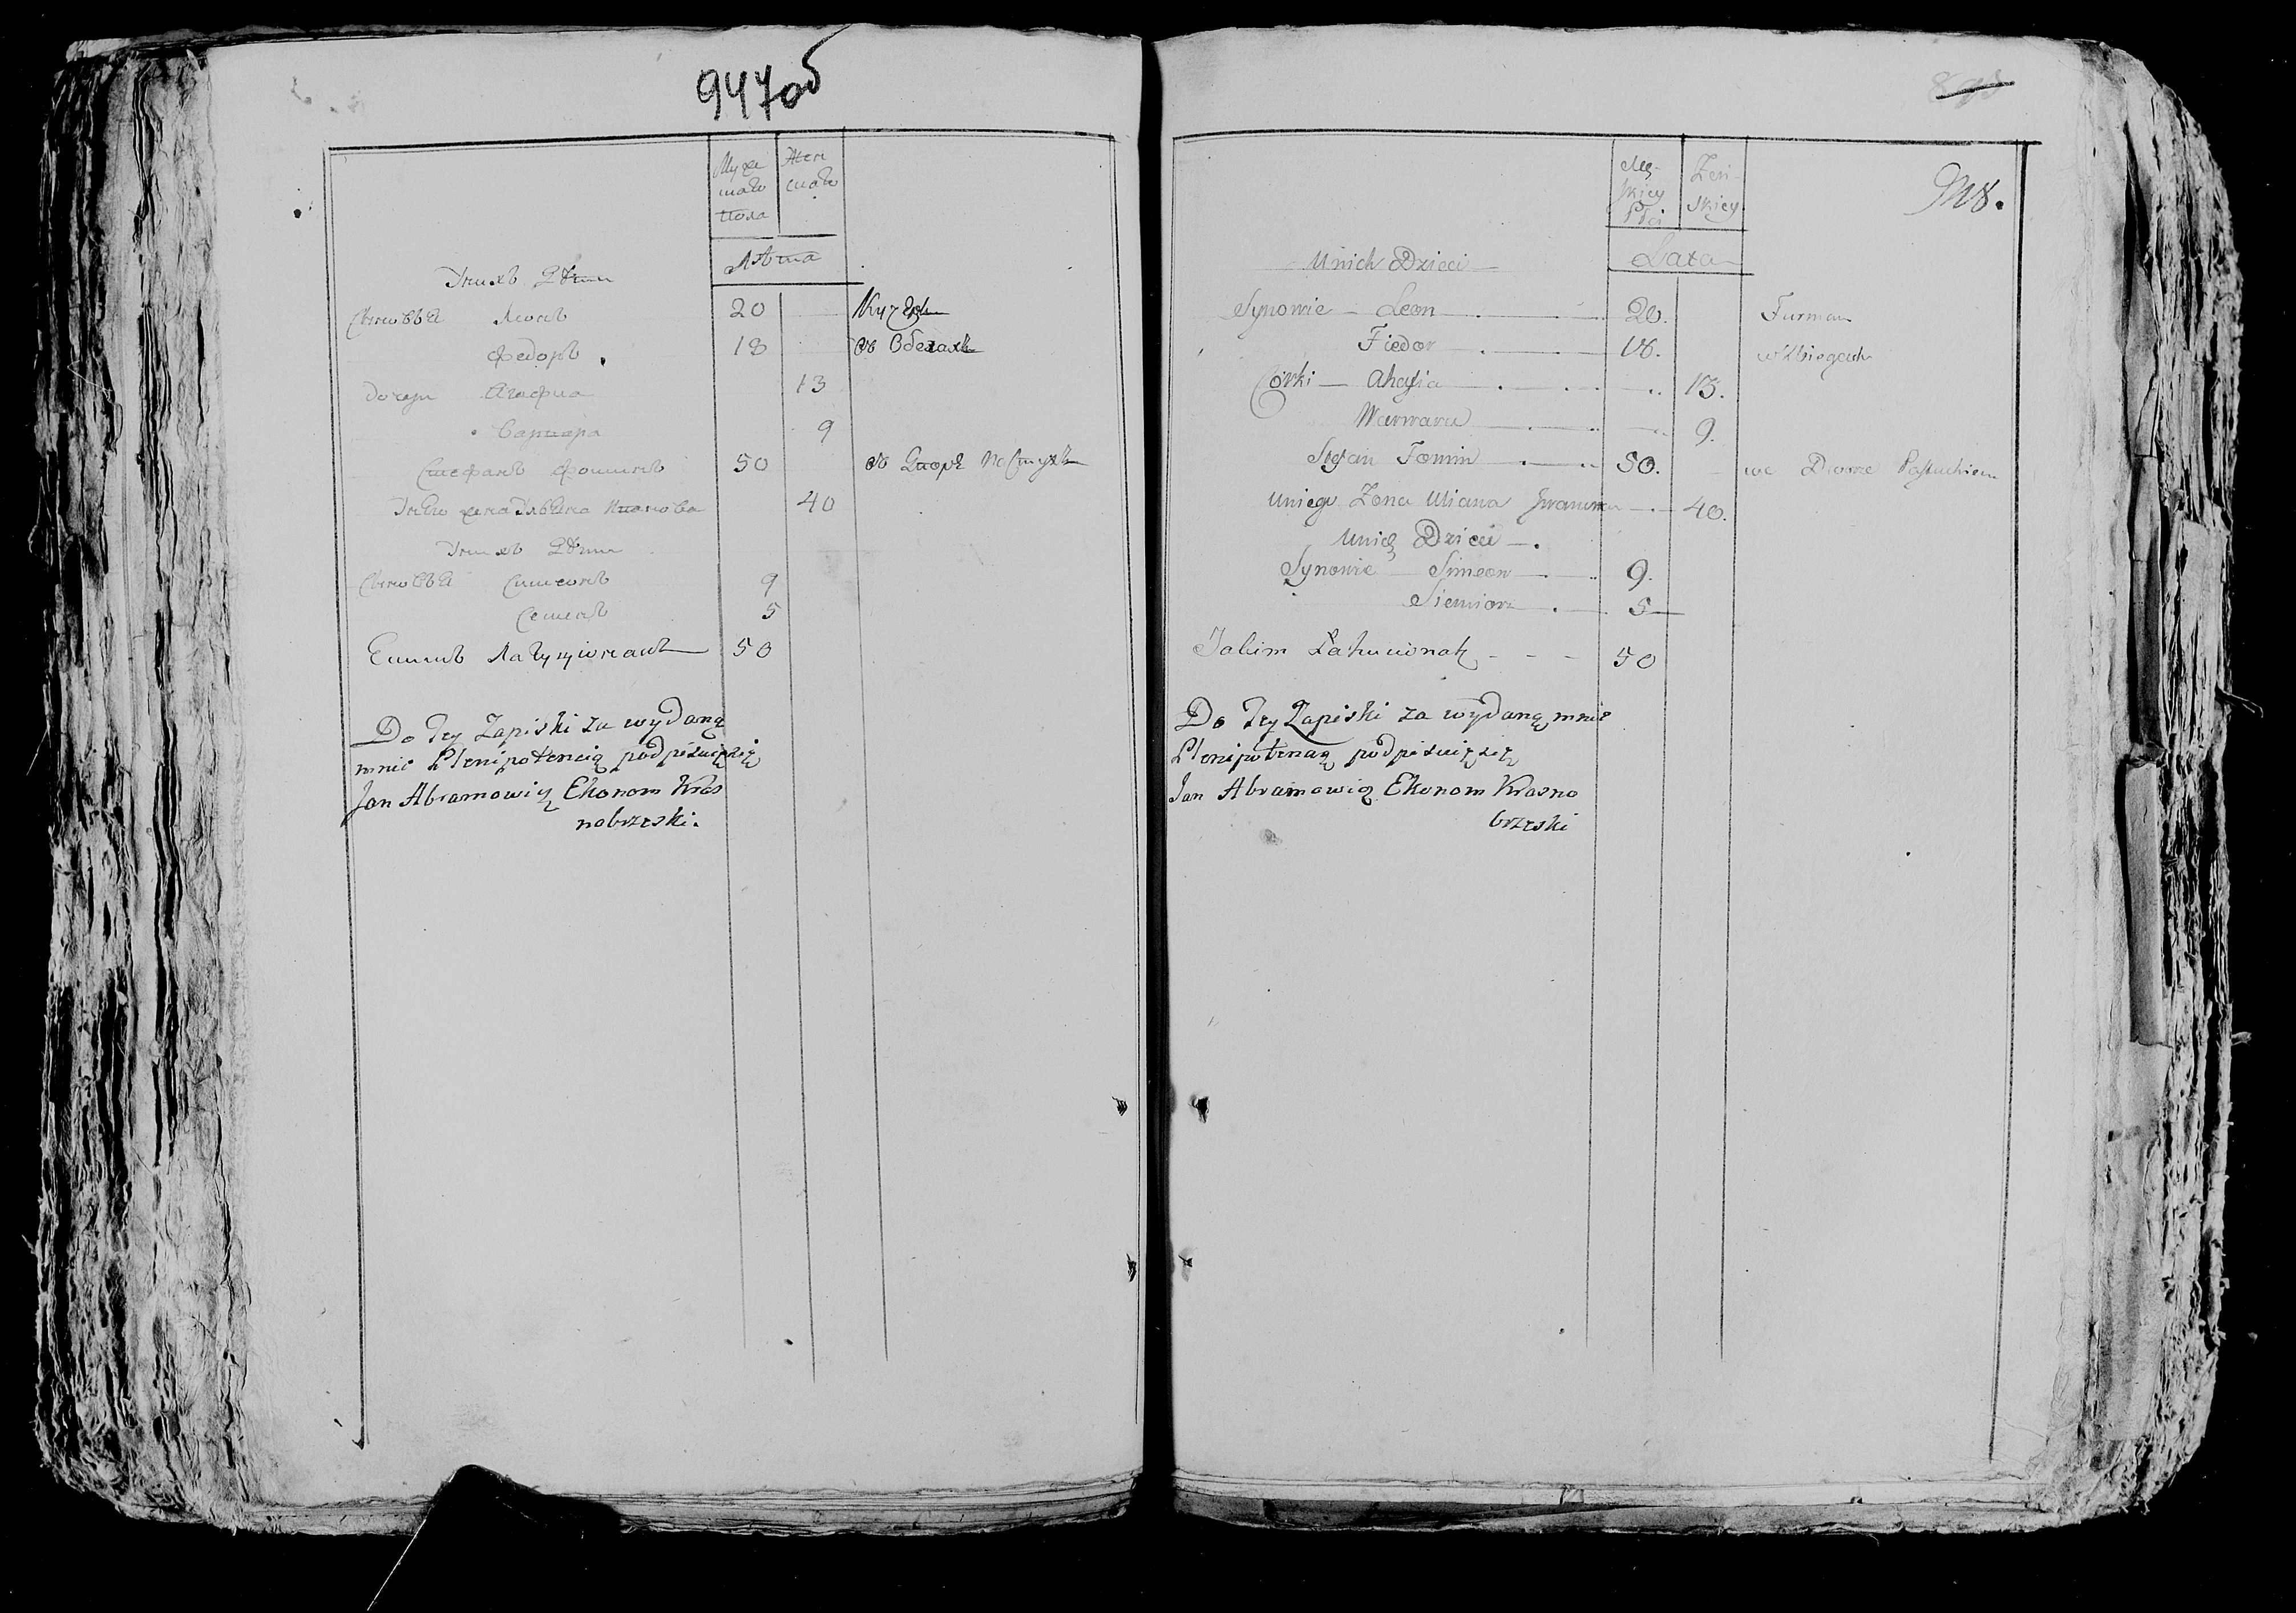 947об
Муже
Жен
скаго
скаго
пола
Лѣта
У нихъ Дѣти
Сыновья Леонъ 20 Кучеръ
Федоръ 18 в бегахъ
Дочери Агафиа 13
Варвара 9
Стефанъ Фоминъ 50 въ Дворѣ Пастухъ
У нѣго жена Ульяна Иванова 40
У нихъ Дѣти
Сыновья Симеонъ 9
Семенъ 5
Екимъ 50
Do Tey Zapiski za wydaną
mnie Plenipotencią podpisuię się
Jan Abramowicz Ekonom Kras
nobrzeski.
Męz-
Zeń-
skiey
skiey
Płci
Lata
U nich Dzieci
Synowie - Leon 20. Furman
Fiedor 18. w Zbiegach
Córki - Ahafia 13.
Warwara 9.
Stefan Fomin 50. we Dworze Pastuchiem
U niego Zona Uliana Iwanowa 40.
U nich Dzieci
Synowie Simeon 9.
Siemion 5
Jakim 50
Do Tey Zapiski za wydaną mnie
Plenipotencią podpisuię się
Jan Abramowicz Ekonom Krasno
brzeski